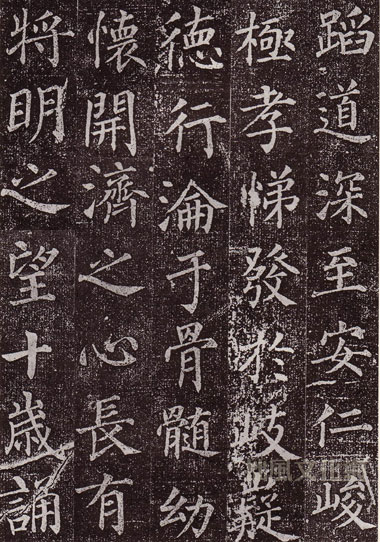 蹈道深至安仁峻
極孝悌發於岐嶷
德行淪于骨髓幼
懷開濟之心長有
將明之望十歳誦